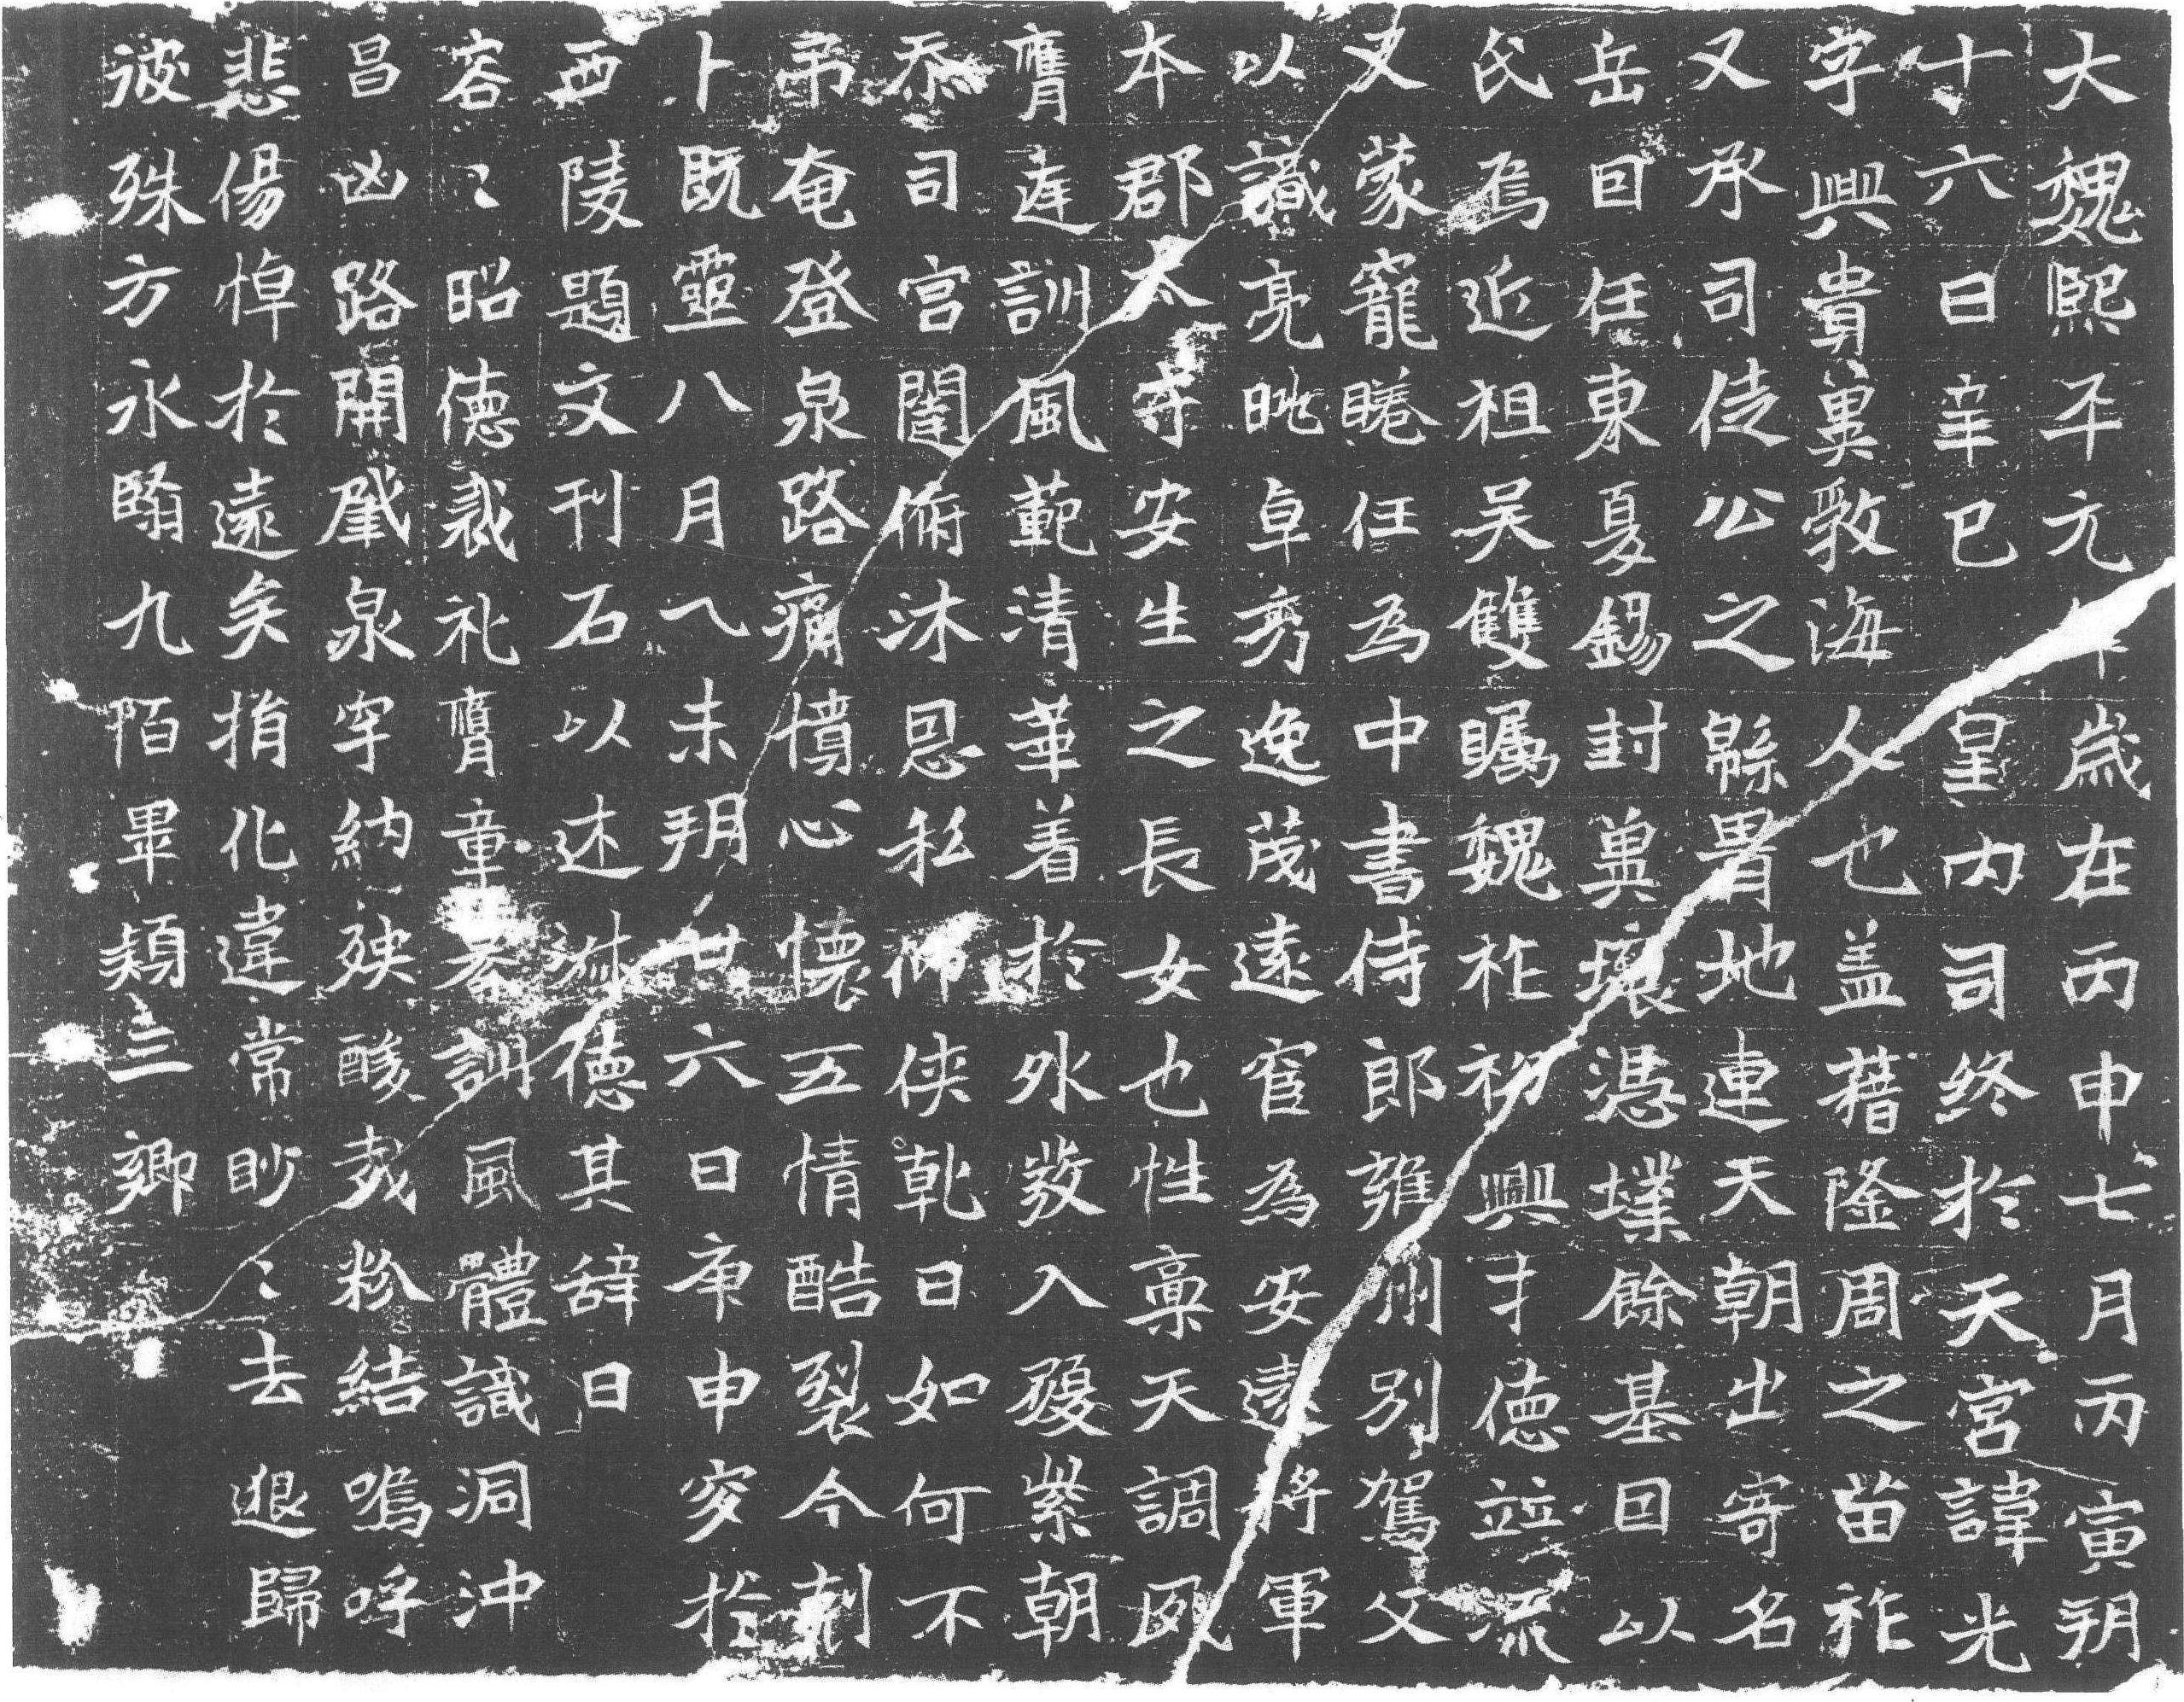 大魏熙平元年歲在丙申七月丙寅朔
十六日辛巳皇內司終於天宮諱光
字興貴冀敦海人也蓋藉隆周之苗祚
又承司徒公之緜冑地連天朝出寄名
岳因任東夏錫封冀壤憑墣餘基因以
氏焉近祖吴雙矚魏祚初興才德竝流
又蒙寵睠任為中書侍郎雍州別駕父
以識亮眺卓秀逸茂遠官為安遠將軍
本郡太守安生之長女也性稟天調夙
膺遠訓風範清華着於外發入殡紫朝
忝司宮闈俯沐恩私仰侠乾日如何不
弔奄登泉路痛憤心懷五情酷裂今刻
卜既靈八月乙未朔廿六日庚申窆於
西陵題文刊石以述徽德其辭曰
容〻昭德裁礼膺童养訓風體識洞沖
昌凶路開肇泉穻納殃酸哉紾結嗚呼
悲傷悼於遠矣捐化違常眇〻去退歸
彼殊方永翳九陌畢頬三卿